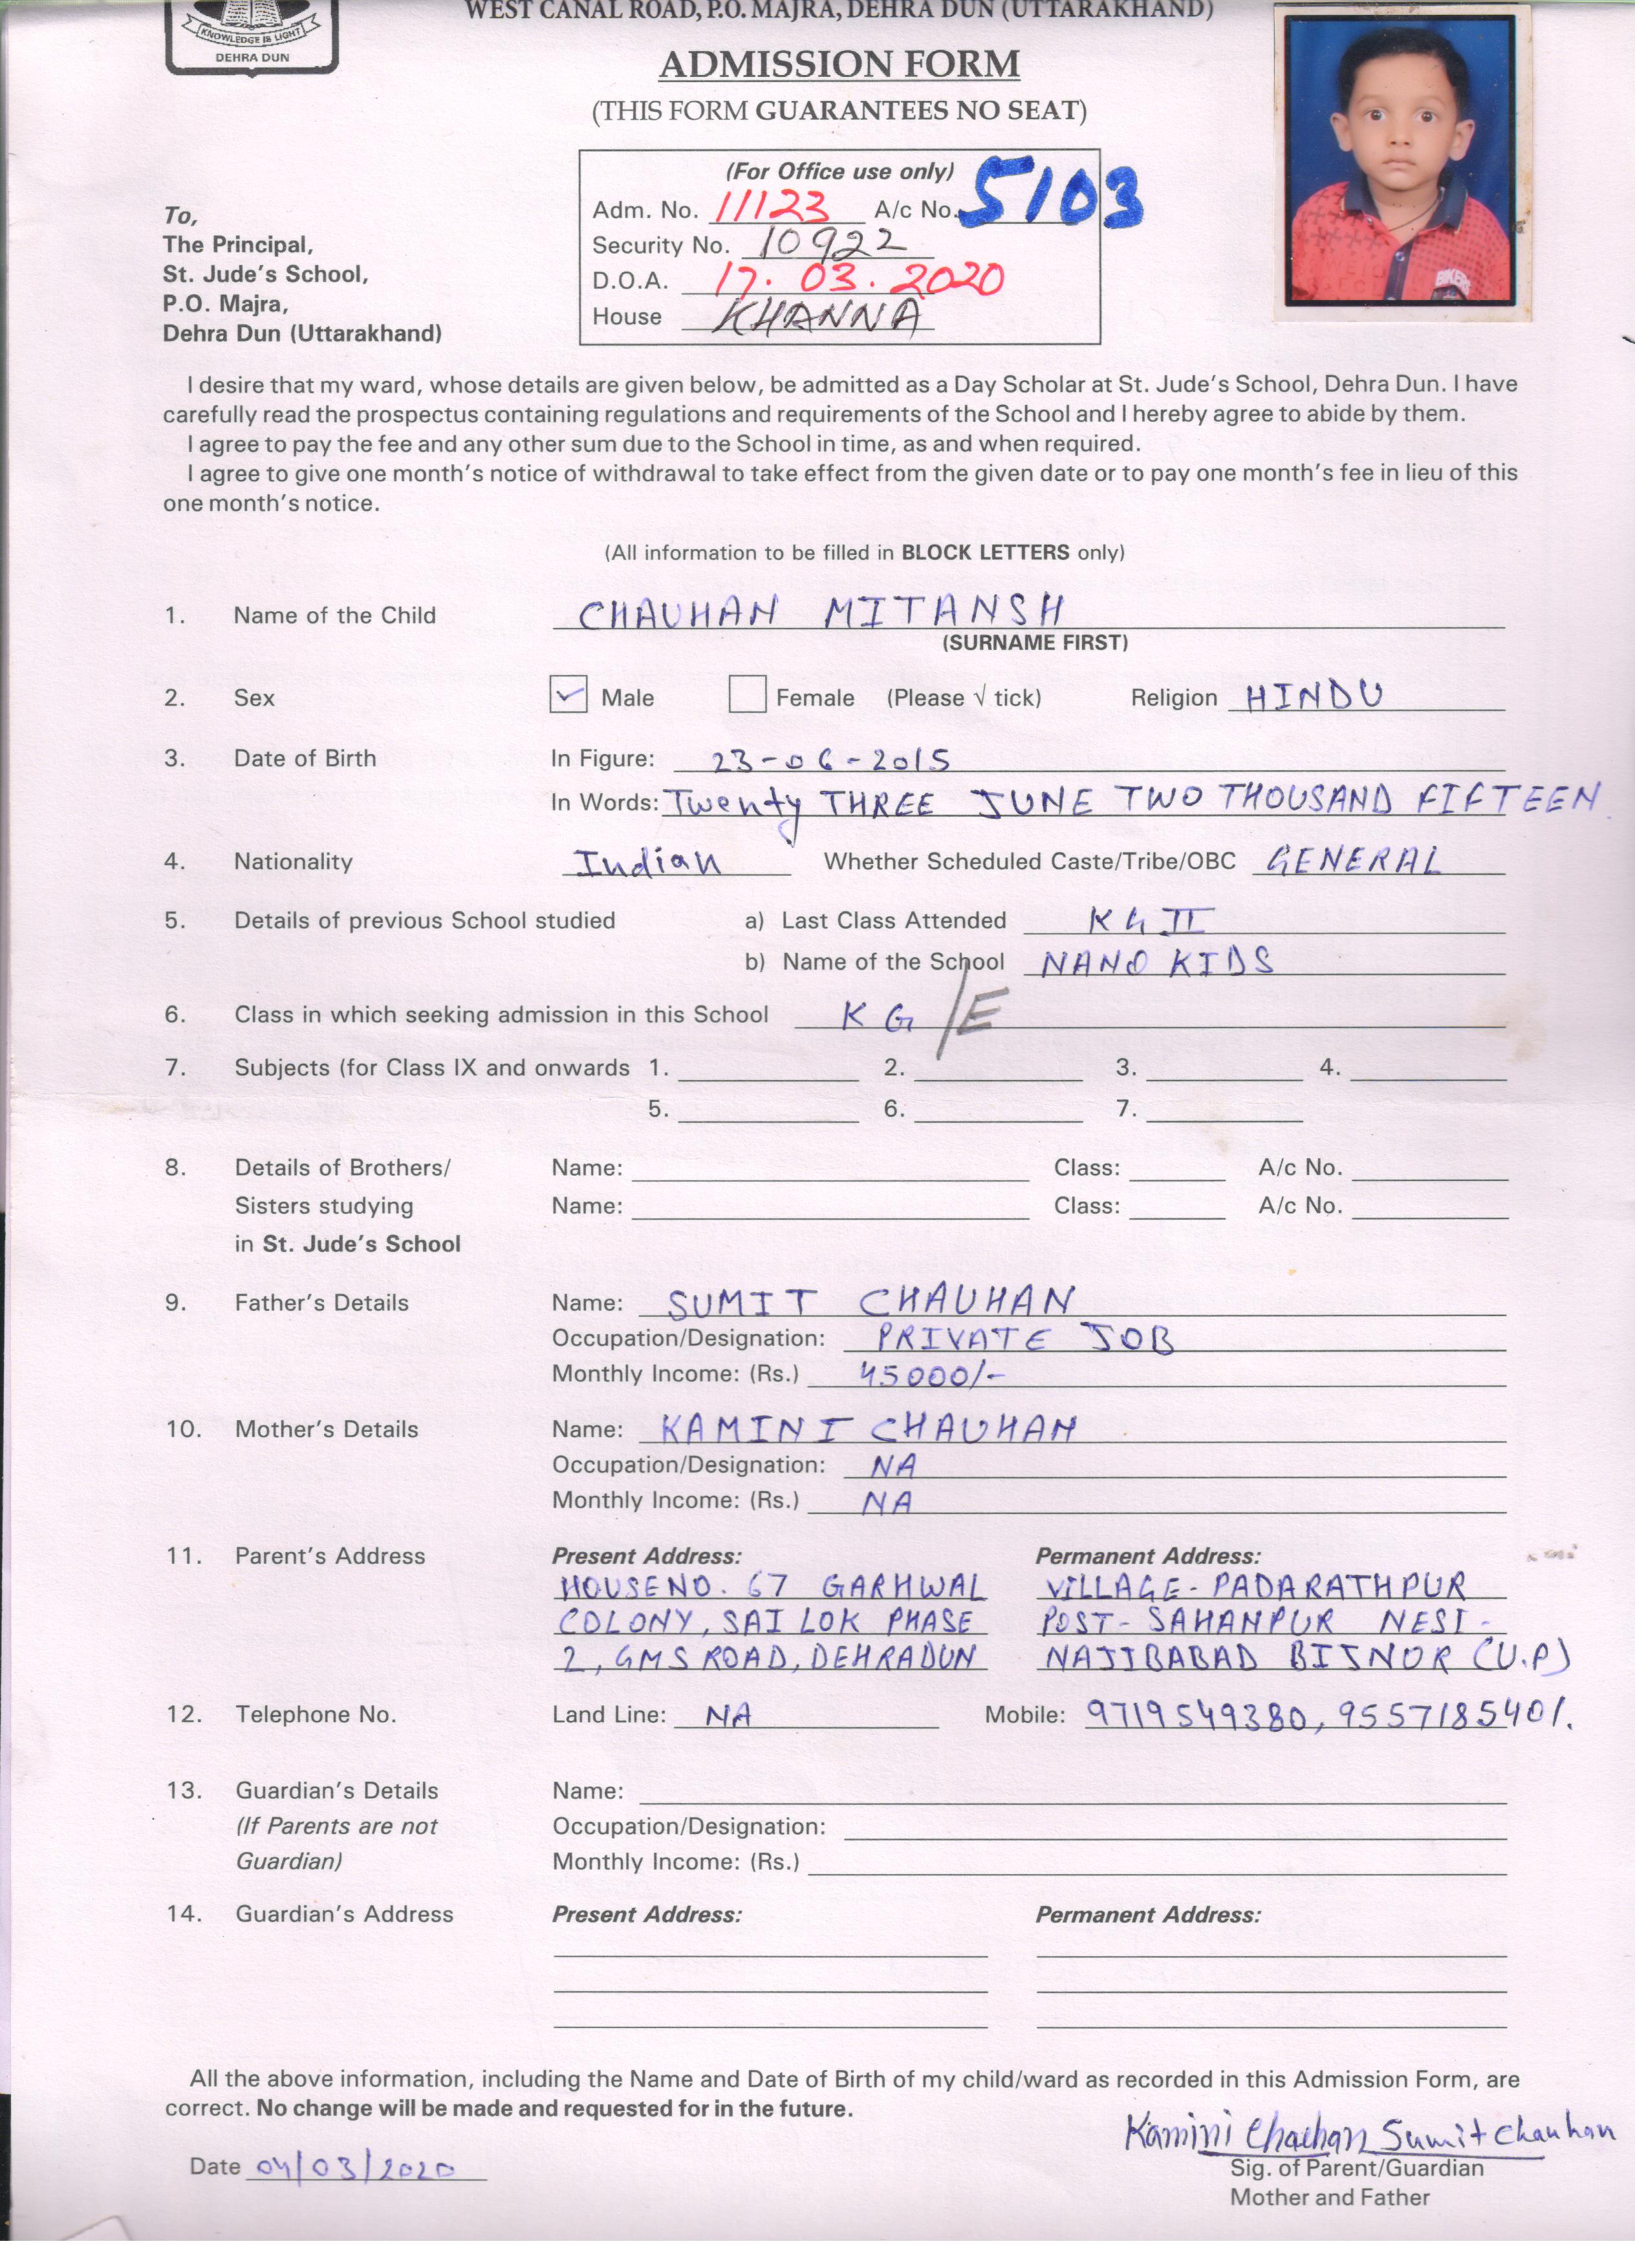 KNOWLEDGE IS LIGHT
DEHRA DUN
WEST CANAL ROAD, P.O. MAJRA, DEHRA DUN (UTTARAKHAND)
ADMISSION FORM
(THIS FORM GUARANTEES NO SEAT)
(For Office use only)
Adm. No. 11123 A/c No. 5103
Security No. 10922
D.O.A. 17.03.2020
House KHANNA
To,
The Principal,
St. Jude's School,
P.O. Majra,
Dehra Dun (Uttarakhand)
I desire that my ward, whose details are given below, be admitted as a Day Scholar at St. Jude's School, Dehra Dun. I have
carefully read the prospectus containing regulations and requirements of the School and I hereby agree to abide by them.
I agree to pay the fee and any other sum due to the School in time, as and when required.
I agree to give one month's notice of withdrawal to take effect from the given date or to pay one month's fee in lieu of this
one month's notice.
(All information to be filled in BLOCK LETTERS only)
1. Name of the Child CHAUHAN MITANSH
(SURNAME FIRST)
2. Sex ✓ Male Female (Please √ tick) Religion HINDU
3. Date of Birth In Figure: 23-06-2015
In Words: Twenty THREE JUNE TWO THOUSAND FIFTEEN
4. Nationality Indian Whether Scheduled Caste/Tribe/OBC GENERAL
5. Details of previous School studied a) Last Class Attended KG II
b) Name of the School NANO KIDS
6. Class in which seeking admission in this School KG /E
7. Subjects (for Class IX and onwards 1. 2. 3. 4.
5. 6. 7.
8. Details of Brothers/ Name: Class: A/c No.
Sisters studying Name: Class: A/c No.
in St. Jude's School
9. Father's Details Name: SUMIT CHAUHAN
Occupation/Designation: PRIVATE JOB
Monthly Income: (Rs.) 45000/-
10. Mother's Details Name: KAMINI CHAUHAN
Occupation/Designation: NA
Monthly Income: (Rs.) NA
11. Parent's Address Present Address: Permanent Address:
HOUSE NO. 67 GARHWAL VILLAGE - PADARATHPUR
COLONY, SAI LOK PHASE POST - SAHANPUR NEST -
2, GMS ROAD, DEHRADUN NAJIBABAD BIJNOR (U.P)
12. Telephone No. Land Line: NA Mobile: 9719549380, 9557185401.
13. Guardian's Details Name:
(If Parents are not Occupation/Designation:
Guardian) Monthly Income: (Rs.)
14. Guardian's Address Present Address: Permanent Address:
All the above information, including the Name and Date of Birth of my child/ward as recorded in this Admission Form, are
correct. No change will be made and requested for in the future.
Kamini Chauhan Sumit Chauhan
Date 04/03/2020 Sig. of Parent/Guardian
Mother and Father